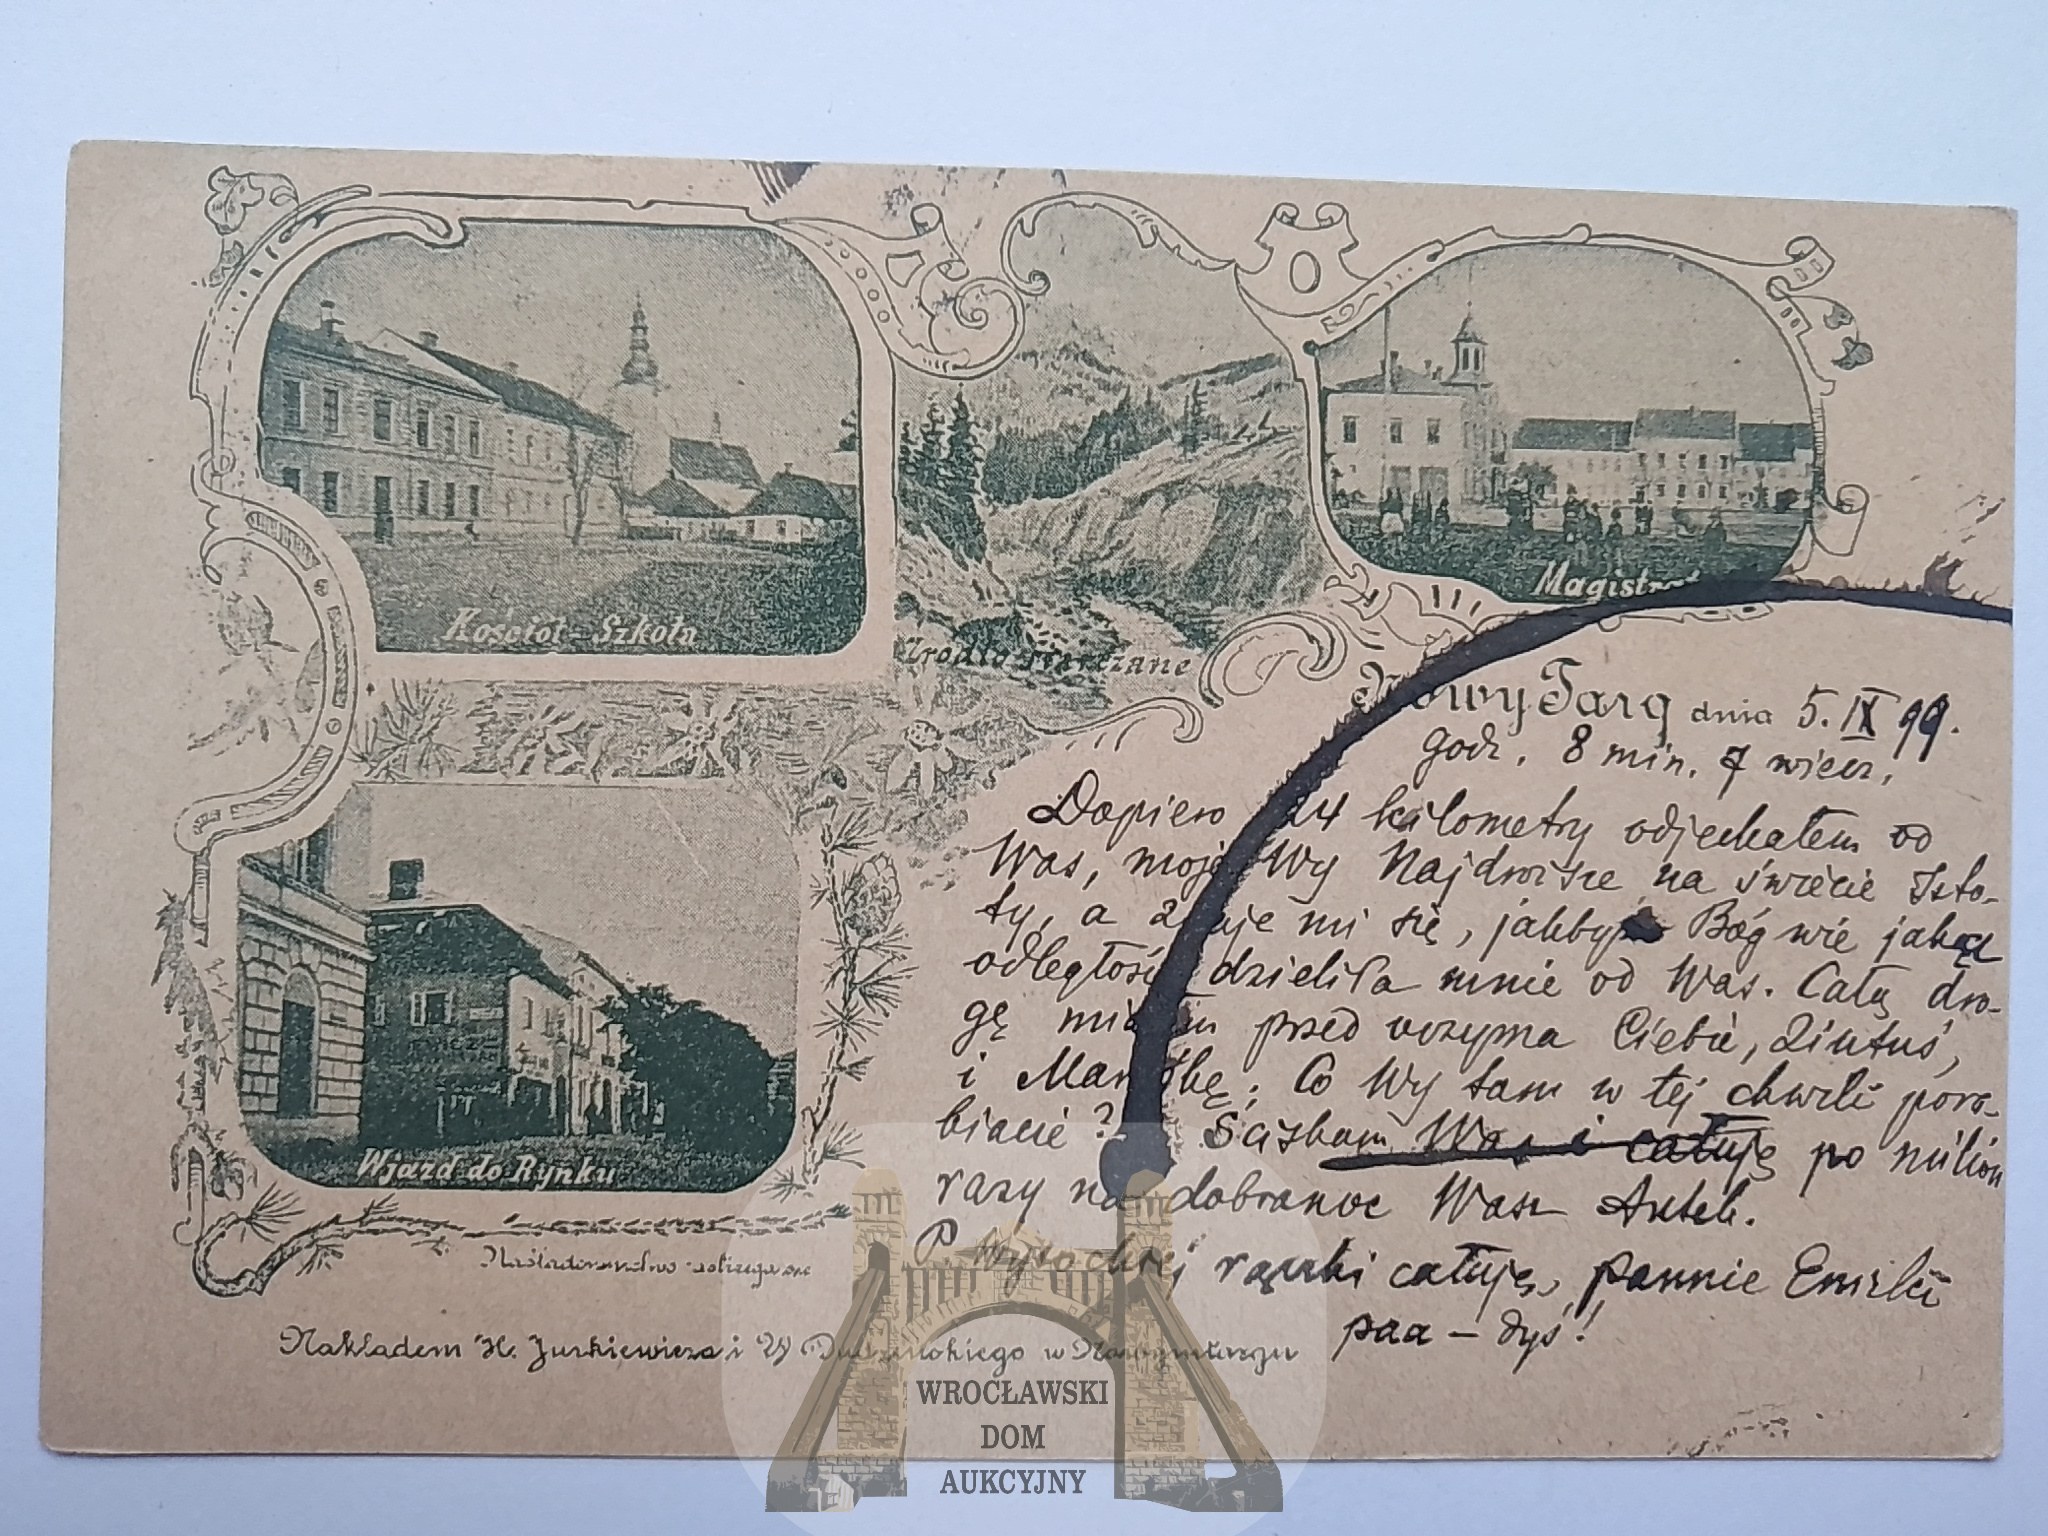 Kościół - Szkoła
Źródło siarczane
Magistrat
Nowy Targ dnia 5. IX 99.
godz. 8 min. 7 wiecz.
Dopiero 24 kilometry odjechałem od
Was, moje Wy Najdroższe na świecie Isto-
ty, a zdaje mi się, jakby Bóg wie jaką
odległość dzieliła mnie od Was. Całą dro-
gę miałem przed oczyma Ciebie, Ziutuś,
i Mamśkę; Co Wy tam w tej chwili pora-
biacie? Ściskam Was i całuję po milion
razy na dobranoc Wasz Antek.
P. Wysockiej rączki całuję, pannie Emilci
paa – dyś!
Wjazd do Rynku
Naśladownictwo zastrzega się
Nakładem H. Jurkiewicza i W w Nowymtargu
WROCŁAWSKI
DOM
AUKCYJNY